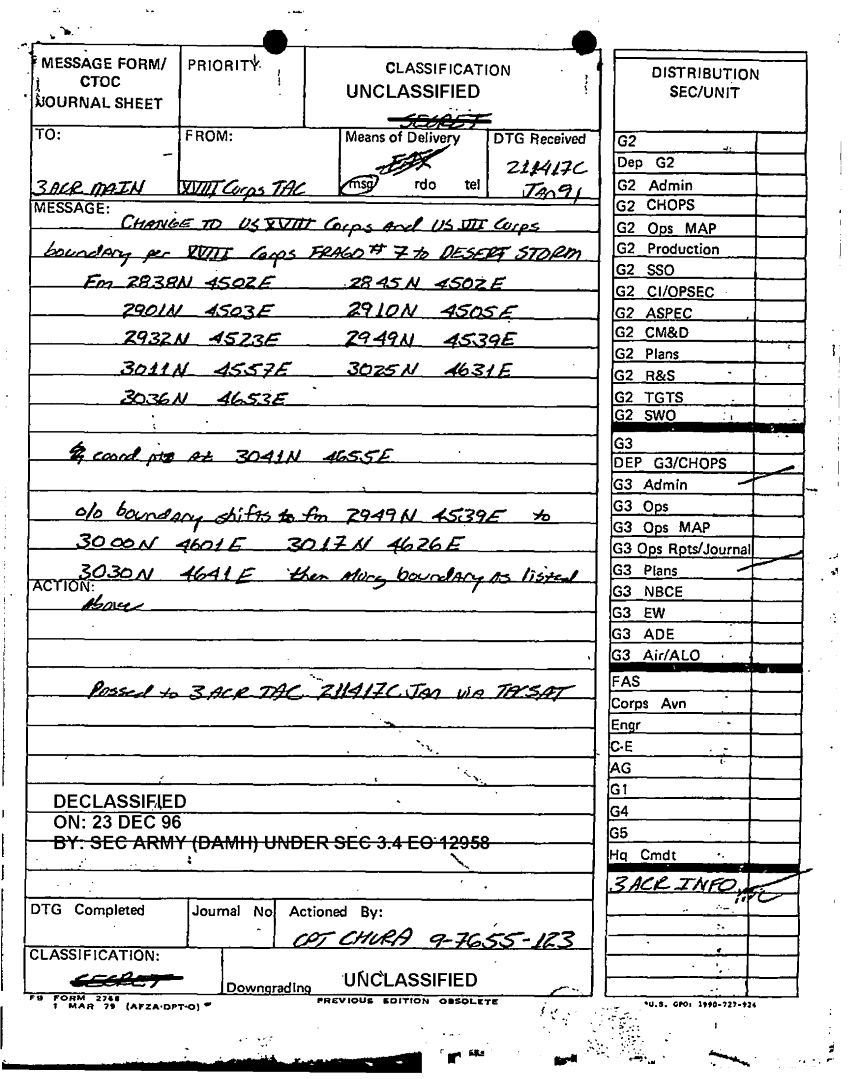 MESSAGE FORM/
CTOC
JOURNAL SHEET
PRIORITY
CLASSIFICATION
UNCLASSIFIED
SECRET
TO:
3ACR MAIN
FROM:
XVIII Corps TAC
Means of Delivery
FAX
msg rdo tel
DTG Received
211417C
Jan 91
MESSAGE:
CHANGE TO US XVIII Corps and US VII Corps
boundary per XVIII Corps FRAGO # 7 to DESERT STORM
Fm 2838N 4502E 2845N 4502E
2901N 4503E 2910N 4505E
2932N 4523E 2949N 4539E
3011N 4557E 3025N 4631E
3036N 4653E
coord pts at 3041N 4655E
o/o boundary shifts to fm 2949N 4539E to
3000N 4601E 3017N 4626E
3030N 4641E then along boundary as listed
ACTION:
Above
Passed to 3ACR TAC 211417C Jan via TACSAT
DECLASSIFIED
ON: 23 DEC 96
BY: SEC ARMY (DAMH) UNDER SEC 3.4 EO 12958
DTG Completed
Journal No
Actioned By:
CPT CHURA 9-7655-123
CLASSIFICATION:
SECRET
Downgrading
UNCLASSIFIED
FB FORM 2768
1 MAR 79 (AFZA-DPT-O)
PREVIOUS EDITION OBSOLETE
DISTRIBUTION
SEC/UNIT
G2
Dep G2
G2 Admin
G2 CHOPS
G2 Ops MAP
G2 Production
G2 SSO
G2 CI/OPSEC
G2 ASPEC
G2 CM&D
G2 Plans
G2 R&S
G2 TGTS
G2 SWO
G3
DEP G3/CHOPS
G3 Admin
G3 Ops
G3 Ops MAP
G3 Ops Rpts/Journal
G3 Plans
G3 NBCE
G3 EW
G3 ADE
G3 Air/ALO
FAS
Corps Avn
Engr
C-E
AG
G1
G4
G5
Hq Cmdt
3ACR INFO
*U.S. GPO: 1990-727-926